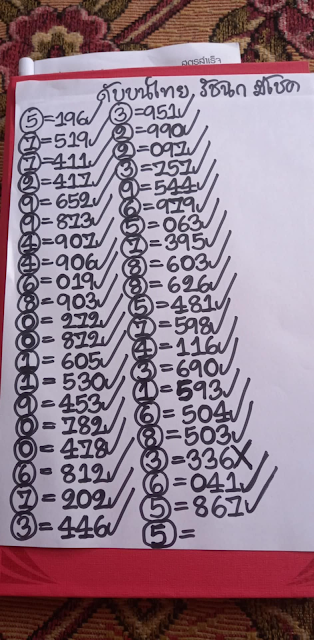 สูตรสำเร็จ
ดับบนไทย, รัชนก มีโชค
5=196✓ 3=951✓
7=519✓ 2=990✓
7=411✓ 2=097✓
2=417✓ 3=757✓
9=652✓ 9=544✓
9=873✓ 6=979✓
4=907✓ 5=063✓
4=906✓ 7=395✓
6=019✓ 8=603✓
8=903✓ 8=626✓
0=272✓ 5=481✓
0=872✓ 7=598✓
1=605✓ 4=116✓
1=530✓ 3=690✓
9=453✓ 1=593✓
0=782✓ 6=504✓
0=478✓ 8=503✓
6=812✓ 3=336X
7=202✓ 6=041✓
3=446✓ 5=867✓
5=